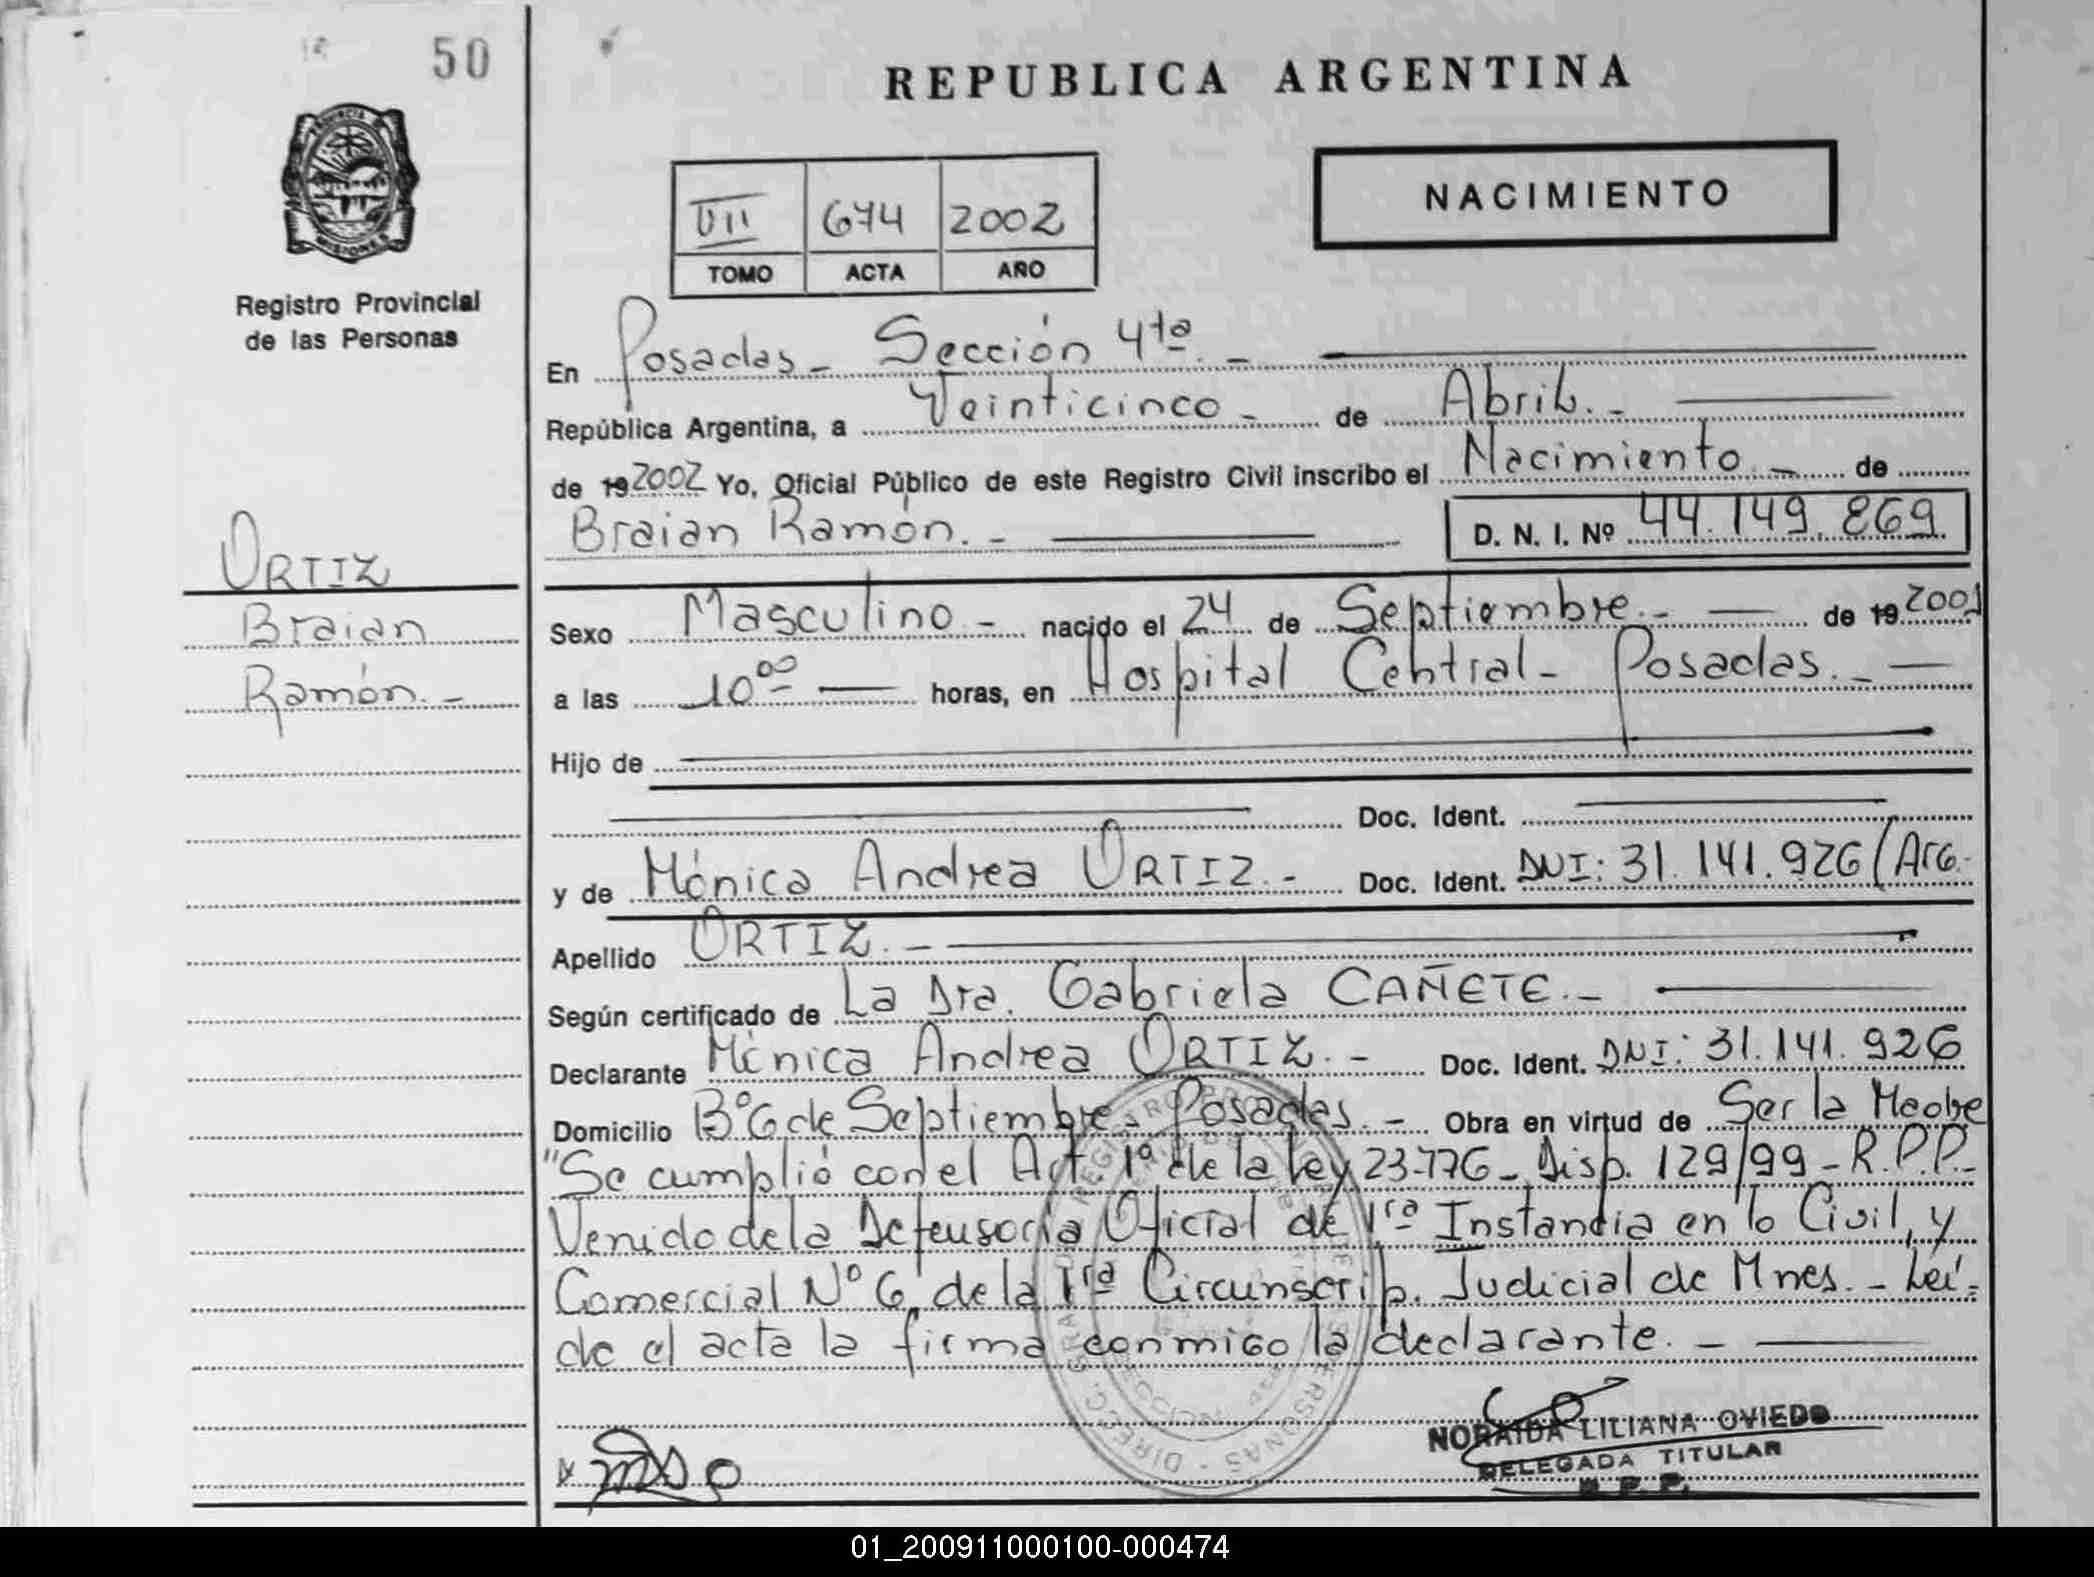 50
REPUBLICA ARGENTINA
NACIMIENTO
VII 674 2002
TOMO ACTA AÑO
PROVINCIA DE
MISIONES
Registro Provincial
de las Personas
En Posadas - Sección 4ta. -
República Argentina, a Veinticinco - de Abril. -
de 19 2002 Yo, Oficial Público de este Registro Civil inscribo el Nacimiento - de
Braian Ramón. - D. N. I. Nº 44.149.869
ORTIZ
Braian
Ramón. -
Sexo Masculino - nacido el 24 de Septiembre. - de 19 2001
a las 10 00 horas, en Hospital Central - Posadas. -
Hijo de
Doc. Ident.
y de Mónica Andrea ORTIZ. - Doc. Ident. DNI: 31.141.926/Arg.
Apellido ORTIZ. -
Según certificado de La Dra. Gabriela CAÑETE. -
Declarante Mónica Andrea ORTIZ. - Doc. Ident. DNI: 31.141.926
Domicilio Bº 6 de Septiembre Posadas. - Obra en virtud de Ser la Madre
"Se cumplió con el Art. 1º de la Ley 23.776 - Disp. 129/99 - R.P.P. -
Venido de la Defensoría Oficial de 1ra Instancia en lo Civil, y
Comercial Nº 6, de la 1ra Circunscrip. Judicial de Mnes. - Leí-
de el acta la firma conmigo la declarante. -
NORAIDA LILIANA OVIEDO
DELEGADA TITULAR
R. P. P.
01_200911000100-000474